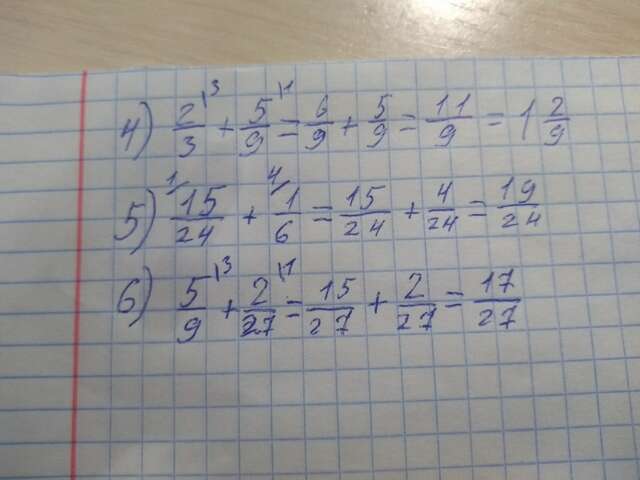 4) 2/3 \3 + 5/9 \1 = 6/9 + 5/9 = 11/9 = 1 2/9
5) 1/ 15/24 + 4/ 1/6 = 15/24 + 4/24 = 19/24
6) 5/9 \3 + 2/27 \1 = 15/27 + 2/27 = 17/27